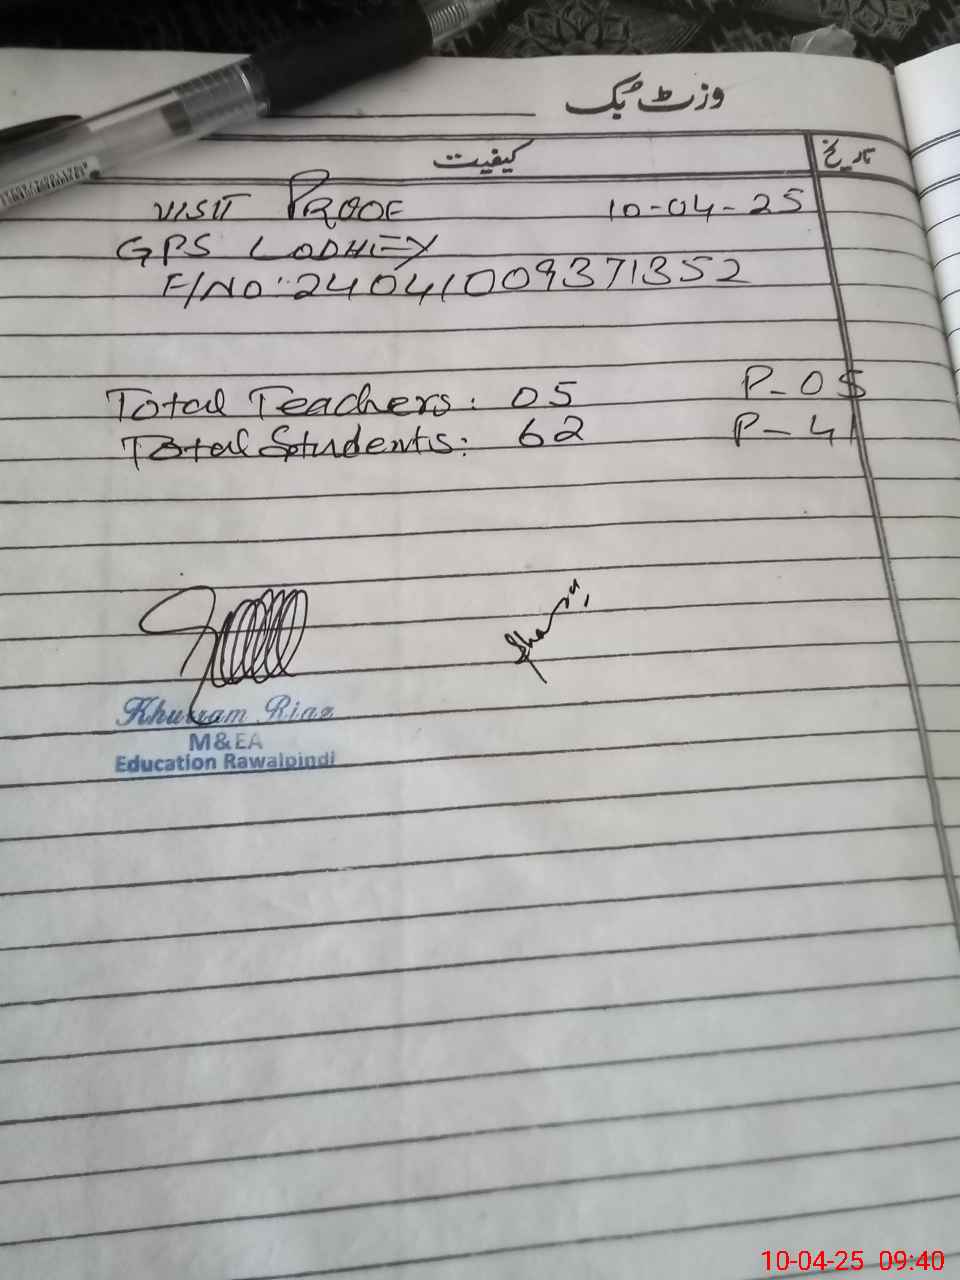 وزٹ بُک
کیفیت
تاریخ
VISIT PROOF 10-04-25
GPS LODHEY
F/NO: 24041009371352
Total Teachers: 05 P-05
Total Students: 62 P-41
Khurram Riaz
M&EA
Education Rawalpindi
10-04-25 09:40